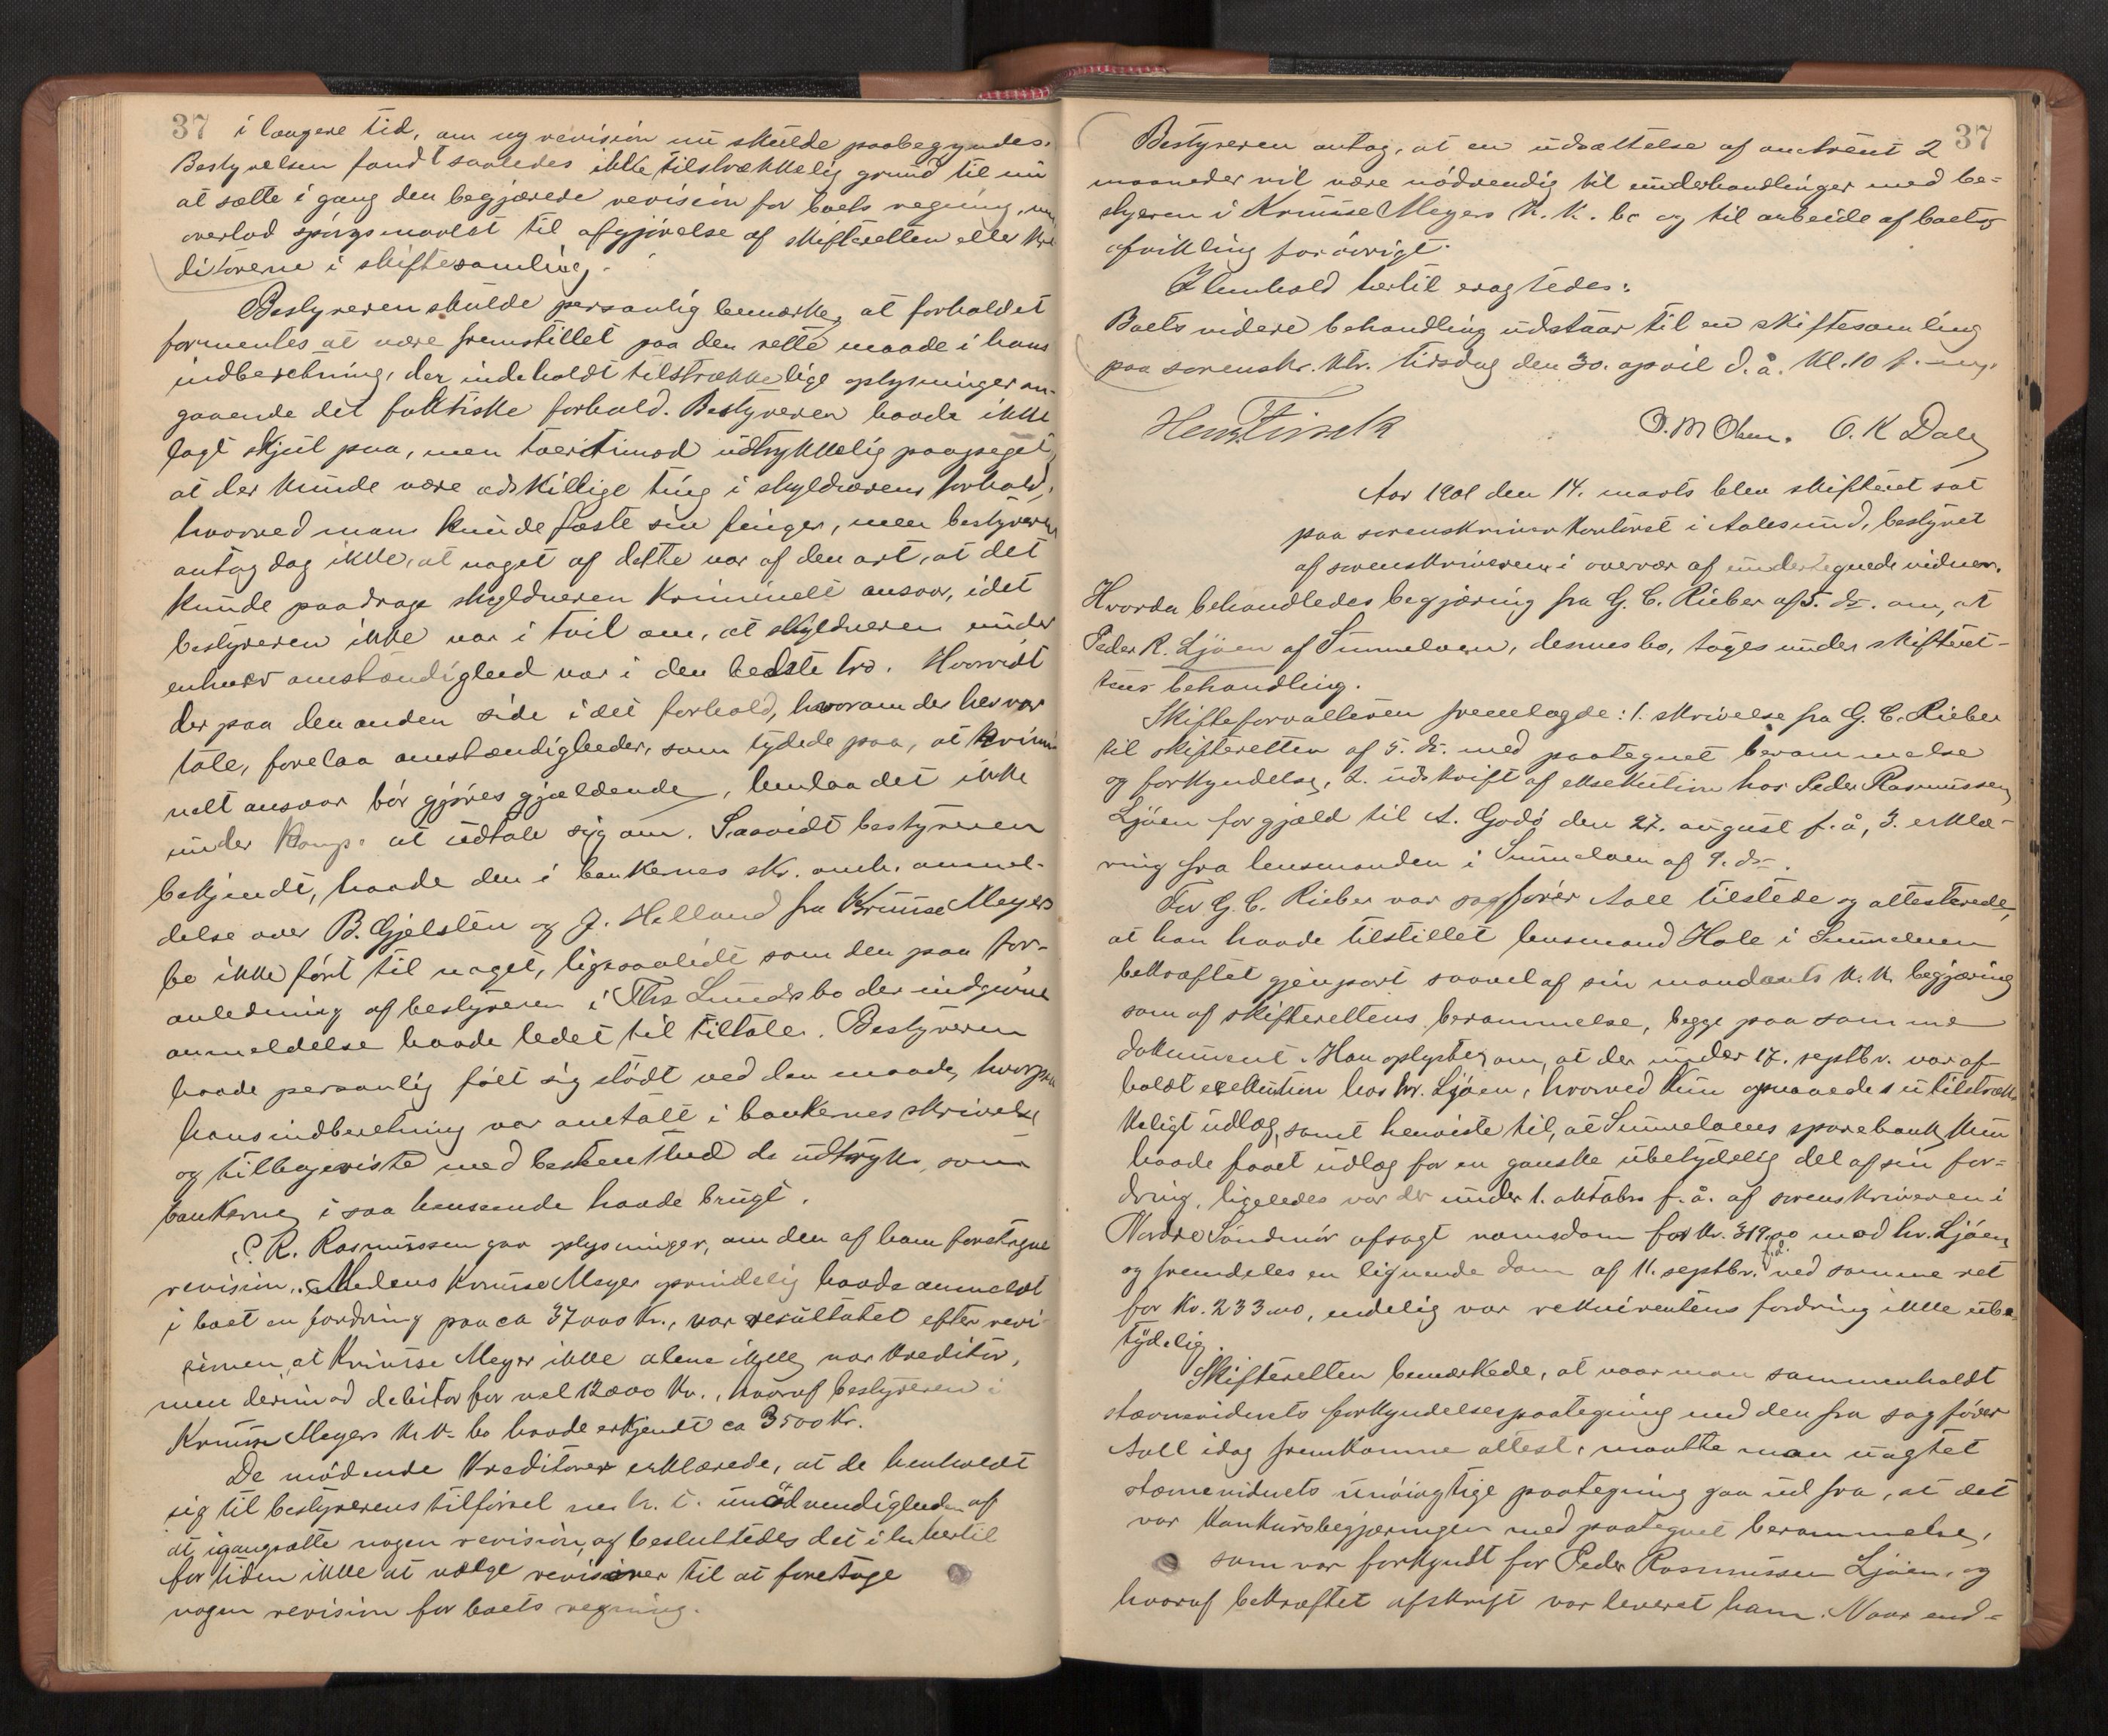 37 i længere tid, om ny revision nu skulde paabegyndes.
Bestyrelsen fandt saaledes ikke tilstrækkelig grund til nu
at sætte i gang den begjærede revision for boets regning, men
overlod spørgsmaalet til afgjørelse af skifteretten eller kre
ditorerne i skiftesamling.
Bestyreren skulde personlig bemærke, at forholdet
formentes at være fremstillet paa den rette maade i hans
indberetning, der indeholdt tilstrækkelige oplysninger an-
gaaende det faktiske forhold. Bestyreren havde ikke
lagt skjul paa, men tvertimod udtrykkelig paapeget,
at der kunde være adskillige ting i skyldnerens forhold,
hvorved man kunde fæste sin finger, men bestyreren
antog dog ikke, at noget af dette var af den art, at det
kunde paadrage skyldneren kriminelt ansvar, idet
bestyreren ikke var i tvil om, at skyldneren under
enhver omstændighed var i den bedste tro. Hvorvidt
der paa den anden side i det forhold, hvorom der her var
tale, forelaa omstændigheder, som tydede paa, at krimi
nelt ansvar bör gjøres gjældende, henlaa det ikke
under komp. at udtale sig om. Saavidt bestyreren
bekjendt, havde den i bankernes skr. omh. anmel-
delse over B. Gjelsten og J. Helland fra Kruuse Meyers
bo ikke ført til noget, ligesaalidt som den paa for-
anledning af bestyreren i Ths Lunds bo der indgivne
anmeldelse havde ledet til tiltale. Bestyreren
havde personlig følt sig stødt ved den maade, hvorpaa
hans indberetning var omtalt i bankernes skrivelse
og tilbageviste med bestemthed de udtryk, som
bankerne i saa henseende havde brugt.
P. R. Rasmussen gav oplysninger, om den af ham foretagne
revision. Medens Kruuse Meyer oprindelig havde anmeldt
i boet en fordring paa ca 37000 Kr., var resultatet efter revi
sionen, at Kruuse Meyer ikke alene ikke var kreditor,
men derimod debitor for vel 12000 Kr., hvoraf bestyreren i
Kruuse Meyers k. k. bo havde erkjendt ca 3500 Kr.
De mødende kreditorer erklærede, at de henholdt
sig til bestyrerens tilførsel m. h. t. unødvendigheden af
at igangsætte nogen revision, og besluttedes det i h. hertil
for tiden ikke at vælge revisorer til at foretage
nogen revision for boets regning.
37
Bestyreren antog, at en udsættelse af omtrent 2
maaneder vil være nødvendig til underhandlinger med be-
styreren i Kruuse Meyers k. k. bo og til arbeide af boets
afvikling forøvrigt.
I henhold hertil eragtedes:
Boets videre behandling udstaar til en skiftesamling
paa sorenskr. ktr. tirsdag den 30. april d. å. kl. 10 f. m.
O. M Olsen. O. K Dale
Aar 1901 den 14. marts blev skifteret sat
paa sorenskriverkontoret i Aalesund, bestyret
af sorenskriveren i overvær af undertegnede vidner.
Hvorda behandledes begjæring fra G. C. Rieber af 5. ds. om, at
Peder R. Ljöen af Sunnelven, dennes bo, tages under skifteret-
tens behandling.
Skifteforvalteren fremlagde: 1. skrivelse fra G. C. Rieber
til skifteretten af 5. ds. med paategnet berammelse
og forkyndelse, 2. udskrift af eksekution hos Peder Rasmussen
Ljöen for gjæld til A. Godö den 27. august f. å, 3. erklæ-
ring fra lensmanden i Sunnelven af 9. ds.
For G. C. Rieber var sagfører Aall tilstede og attesterede,
at han havde tilstillet lensmand Hole i Sunnelven
bekræftet gjenpart saavel af sin mandants k. k. begjæring
som af skifterettens berammelse, begge paa samme
dokument. Han oplyste om, at der under 17. septbr. var af-
holdt exekution hos hr. Ljöen, hvorved kun opnaaedes utilstræk
keligt udlæg, samt henviste til, at Sunnelvens sparebank kun
havde faaet udlæg for en ganske ubetydelig del af sin for-
dring, ligeledes var der under 1. oktober f. å. af sorenskriveren i
Nordre Söndmör afsagt namsdom for kr. 319.00 mod hr. Ljöen
og fremdeles en lignende dom af 11. septbr. f. å. ved samme ret
for kr. 233.00, endelig var rekvirentens fordring ikke ube
tydelig.
Skifteretten bemærkede, at naar man sammenholdt
stævnevidnets forkyndelsespaategning med den fra sagfører
Aall idag fremkomne attest, maatte man uagtet
stævnevidnets unøiagtige paategning gaa ud fra, at det
var konkursbegjæringen med paategnet berammelse,
som var forkyndt for Peder Rasmussen Ljöen, og
hvoraf bekræftet afskrift var leveret ham. Naar end-